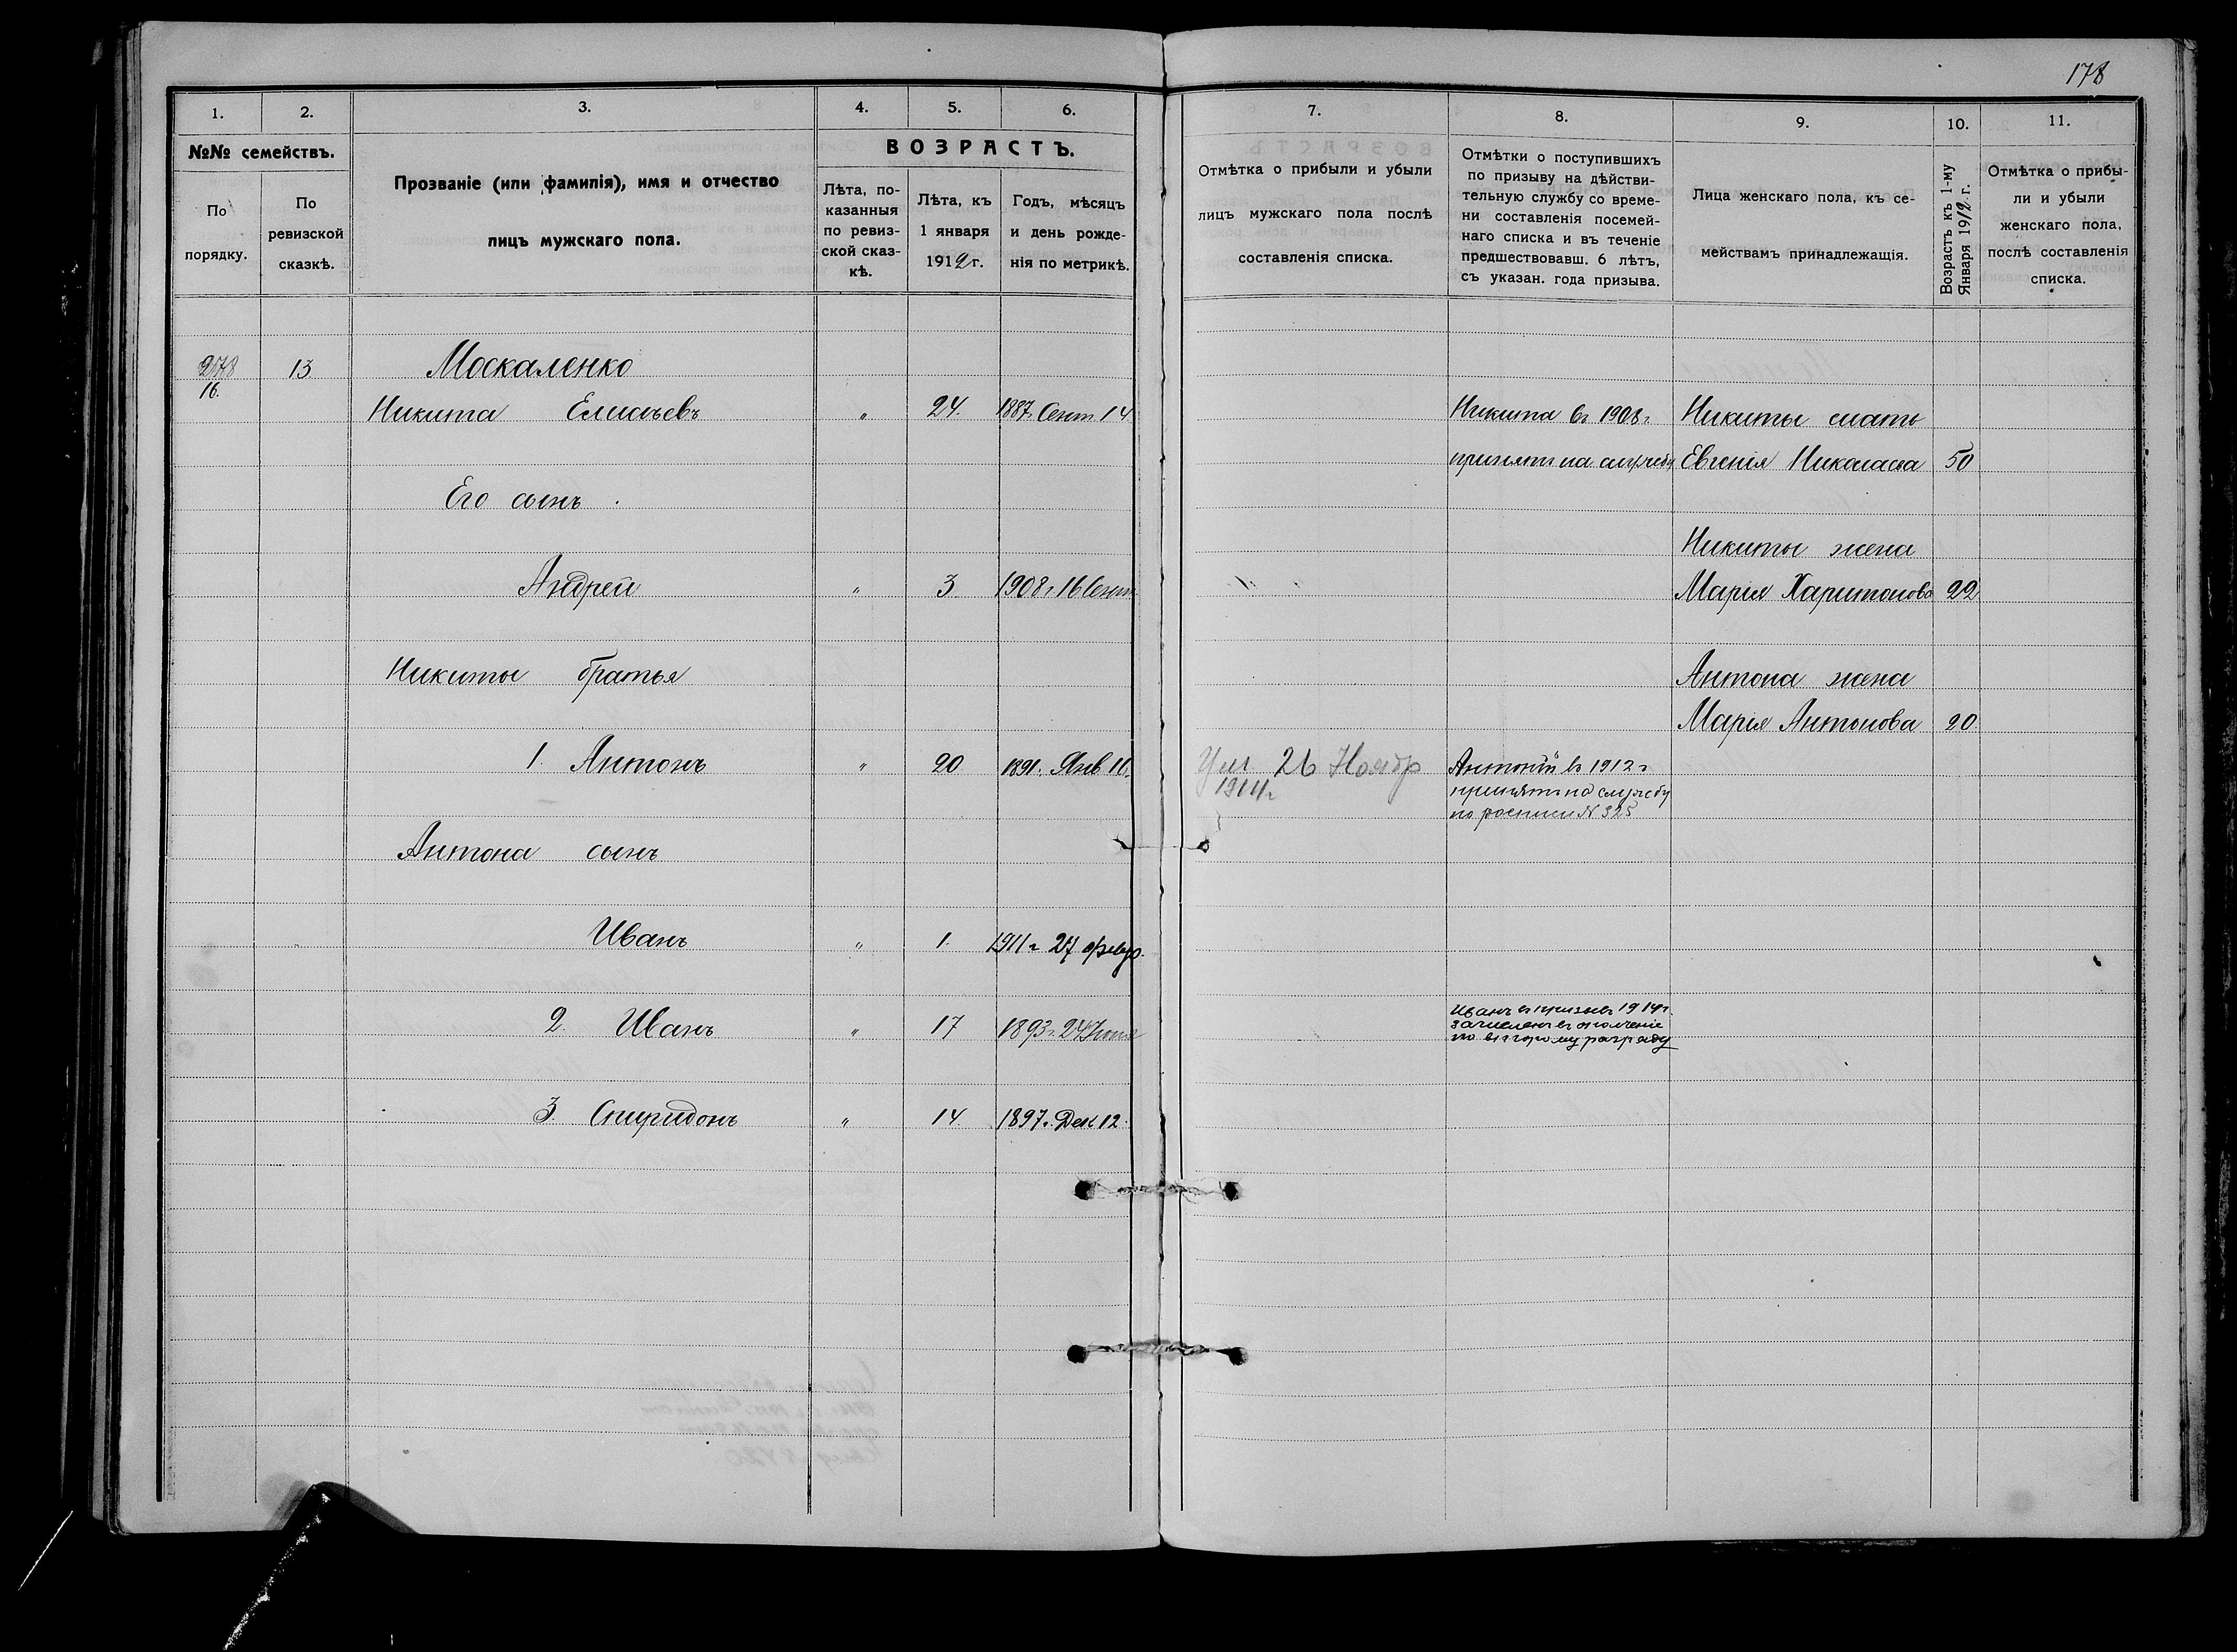 178
1. 2. 3. 4. 5. 6.
№№ семействъ.
По порядку.
По ревизской сказкѣ.
Прозваніе (или фамилія), имя и отчество
лицъ мужскаго пола.
ВОЗРАСТЪ.
Лѣта, по-
казанныя
по ревиз-
ской сказ-
кѣ.
Лѣта, къ
1 января
1912 г.
Годъ, мѣсяцъ
и день рожде-
нія по метрикѣ.
278 13 Москаленко
16.
Никита Елисѣевъ " 24. 1887 г. Сент 14
Его сынъ
Андрей " 3 1908 г. 16 Сент
Никиты братья
1. Антонъ " 20 1891 г. Янв 16.
Антона сынъ
Иванъ " 1. 1911 г 27 февр.
2. Иванъ " 17 1893 г. 24 Iюня
3. Спиридонъ " 14 1897 г. Дек 12.
7. 8. 9. 10. 11.
Отмѣтка о прибыли и убыли
лицъ мужскаго пола послѣ
составленія списка.
Отмѣтки о поступившихъ
по призыву на дѣйстви-
тельную службу со време-
ни составленія посемей-
наго списка и въ теченіе
предшествовавш. 6 лѣтъ,
съ указан. года призыва.
Лица женскаго пола, къ се-
мействамъ принадлежащія.
Возрастъ къ 1-му
Января 1912 г.
Отмѣтка о прибы-
ли и убыли
женскаго пола,
послѣ составленія
списка.
Никита въ 1908 г. Никиты мать
принятъ на службу Евгенія Николаева 50
Никиты жена
Марія Харитонова 22
Антона жена
Марія Антонова 20
Ум 26 Ноябр
1914 г
Антоній въ 1912 г
принятъ на службу
по росписи № 325
Иванъ въ призывъ 1914 г.
зачисленъ въ ополченіе
по второму разряду